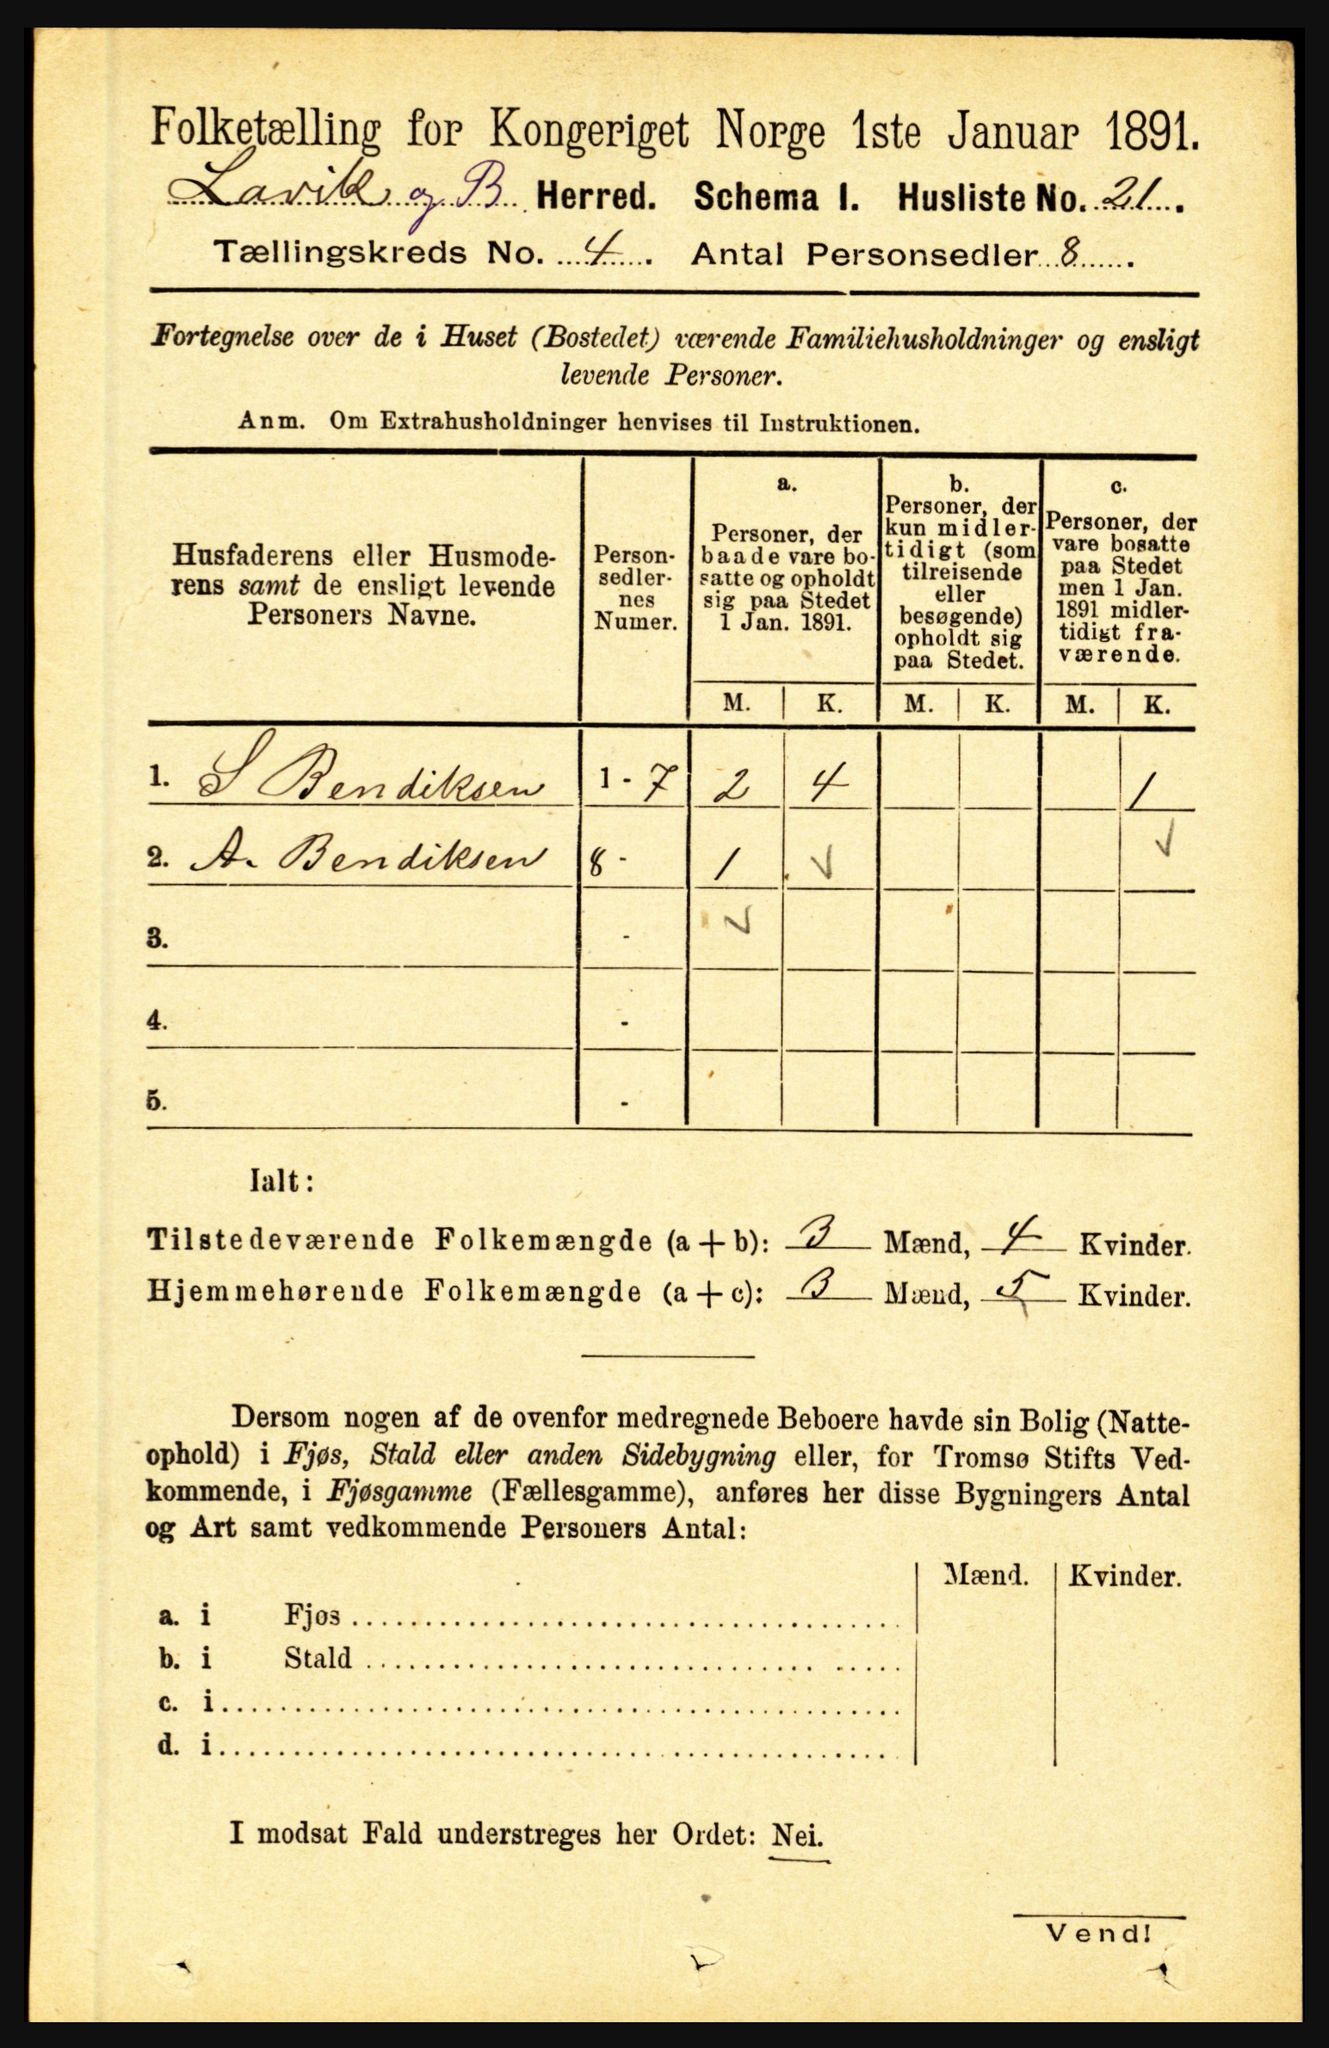 Folketælling for Kongeriget Norge 1ste Januar 1891.
Lavik og B. Herred. Schema I. Husliste No. 21.
Tællingskreds No. 4. Antal Personsedler 8.
Fortegnelse over de i Huset (Bostedet) værende Familiehusholdninger og ensligt
levende Personer.
Anm. Om Extrahusholdninger henvises til Instruktionen.
Husfaderens eller Husmode-
rens samt de ensligt levende
Personers Navne.
Person-
sedler-
nes
Numer.
a.
Personer, der
baade vare bo-
satte og opholdt
sig paa Stedet
1 Jan. 1891.
b.
Personer, der
kun midler-
tidigt (som
tilreisende
eller
besøgende)
opholdt sig
paa Stedet.
c.
Personer, der
vare bosatte
paa Stedet
men 1 Jan.
1891 midler-
tidigt fra-
værende.
M. K. M. K. M. K.
1. S Bendiksen 1 - 7 2 4 1
2. A. Bendiksen 8 - 1
3. -
4. -
5. -
Ialt:
Tilstedeværende Folkemængde (a + b): 3 Mænd, 4 Kvinder.
Hjemmehørende Folkemængde (a + c): 3 Mænd, 5 Kvinder.
Dersom nogen af de ovenfor medregnede Beboere havde sin Bolig (Natte-
ophold) i Fjøs, Stald eller anden Sidebygning eller, for Tromsø Stifts Ved-
kommende, i Fjøsgamme (Fællesgamme), anføres her disse Bygningers Antal
og Art samt vedkommende Personers Antal:
Mænd. Kvinder.
a. i Fjøs
b. i Stald
c. i
d. i
I modsat Fald understreges her Ordet: Nei.
Vend!